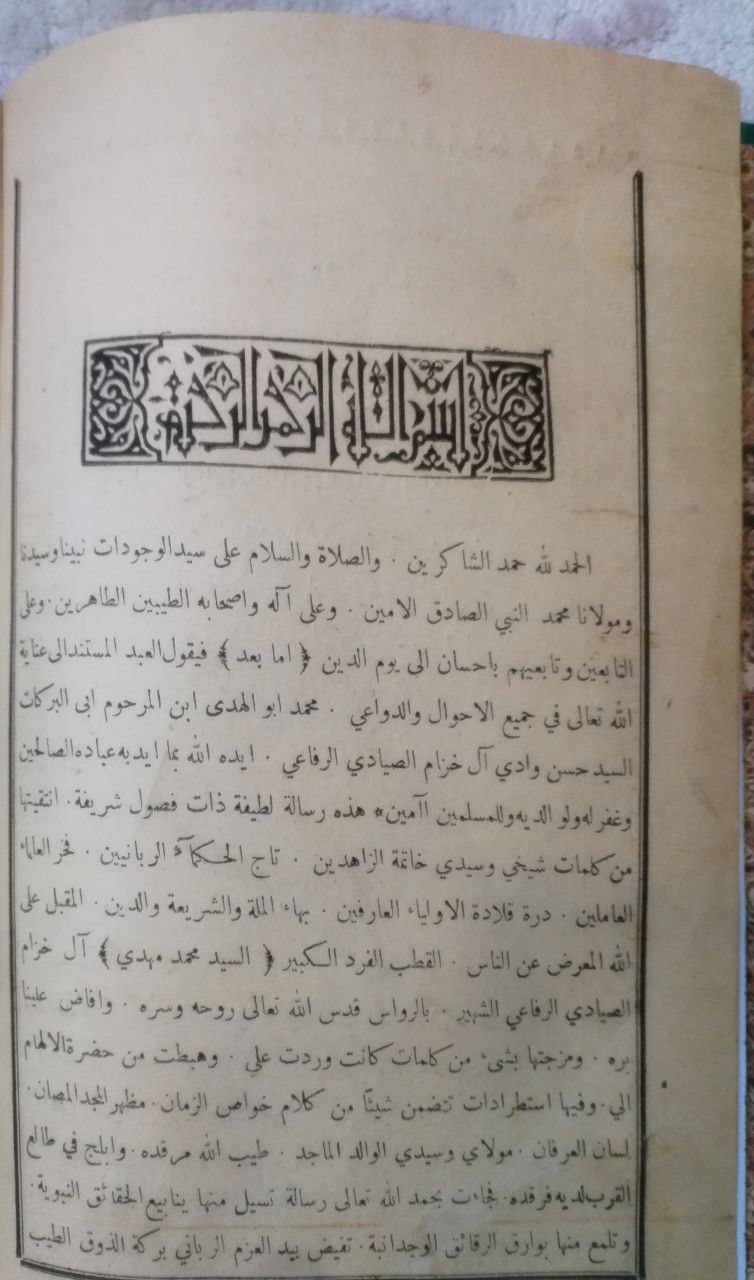 بسم الله الرحمن الرحيم
الحمد لله حمد الشاكرين . والصلاة والسلام على سيد الوجودات نبينا وسيدنا
ومولانا محمد النبي الصادق الامين . وعلى آله واصحابه الطيبين الطاهرين . وعلى
التابعين وتابعيهم باحسان الى يوم الدين ﴿ اما بعد ﴾ فيقول العبد المستند الى عناية
الله تعالى في جميع الاحوال والدواعي . محمد ابو الهدى ابن المرحوم ابى البركات
السيد حسن وادي آل خزام الصيادي الرفاعي . ايده الله بما ايد به عباده الصالحين
وغفر له ولو الديه وللمسلمين اآمين * هذه رسالة لطيفة ذات فصول شريفة . انتقيتها
من كلمات شيخي وسيدي خاتمة الزاهدين . تاج الحكمآء الربانيين . فخر العلماء
العاملين . درة قلادة الاولياء العارفين . بهاء الملة والشريعة والدين . المقبل على
الله المعرض عن الناس . القطب الفرد الكبير ﴿ السيد محمد مهدي ﴾ آل خزام
الصيادي الرفاعي الشهير . بالرواس قدس الله تعالى روحه وسره . وافاض علينا
بره . ومزجتها بشىء من كلمات كانت وردت علي . وهبطت من حضرة الالهام
الي . وفيها استطرادات تتضمن شيئا من كلام خواص الزمان . مظهر المجد المصان .
لسان العرفان . مولاي وسيدي الوالد الماجد . طيب الله مرقده . وابلج في طالع
القرب لديه فرقده . فجاءت بحمد الله تعالى رسالة تسيل منها ينابيع الحقائق النبوية .
وتلمع منها بوارق الرقائق الوجدانية . تفيض بيد العزم الرباني بركة الذوق الطيب